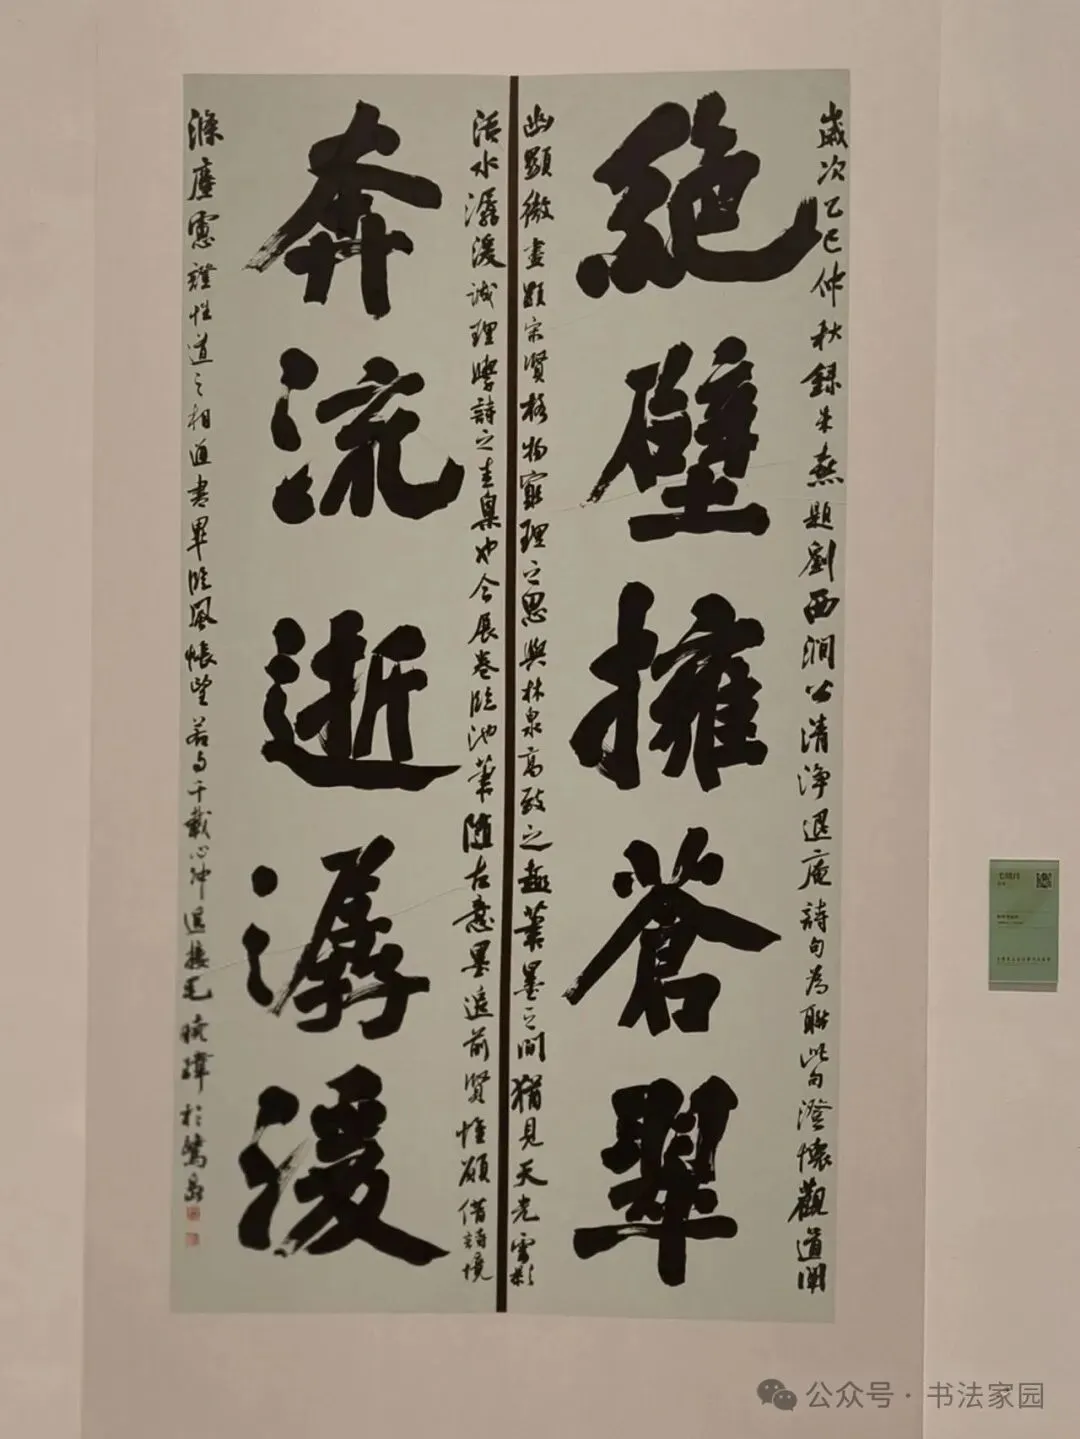 歲次乙巳仲秋錄朱熹題劉西澗公清淨退庵詩句為聯此句澄懷觀道闡
絕壁擁蒼翠
幽顯微盡顯宋賢格物窮理之思與林泉高致之趣叢墨之間猶見天光雲影
活水潺湲誠理學詩之圭臬也今展卷臨池筆隨古意墨追前賢惟願借詩境
奔流逝潺湲
滌塵慮證性道之相道書畢臨風悵望若與千載心神
公众号·书法家园